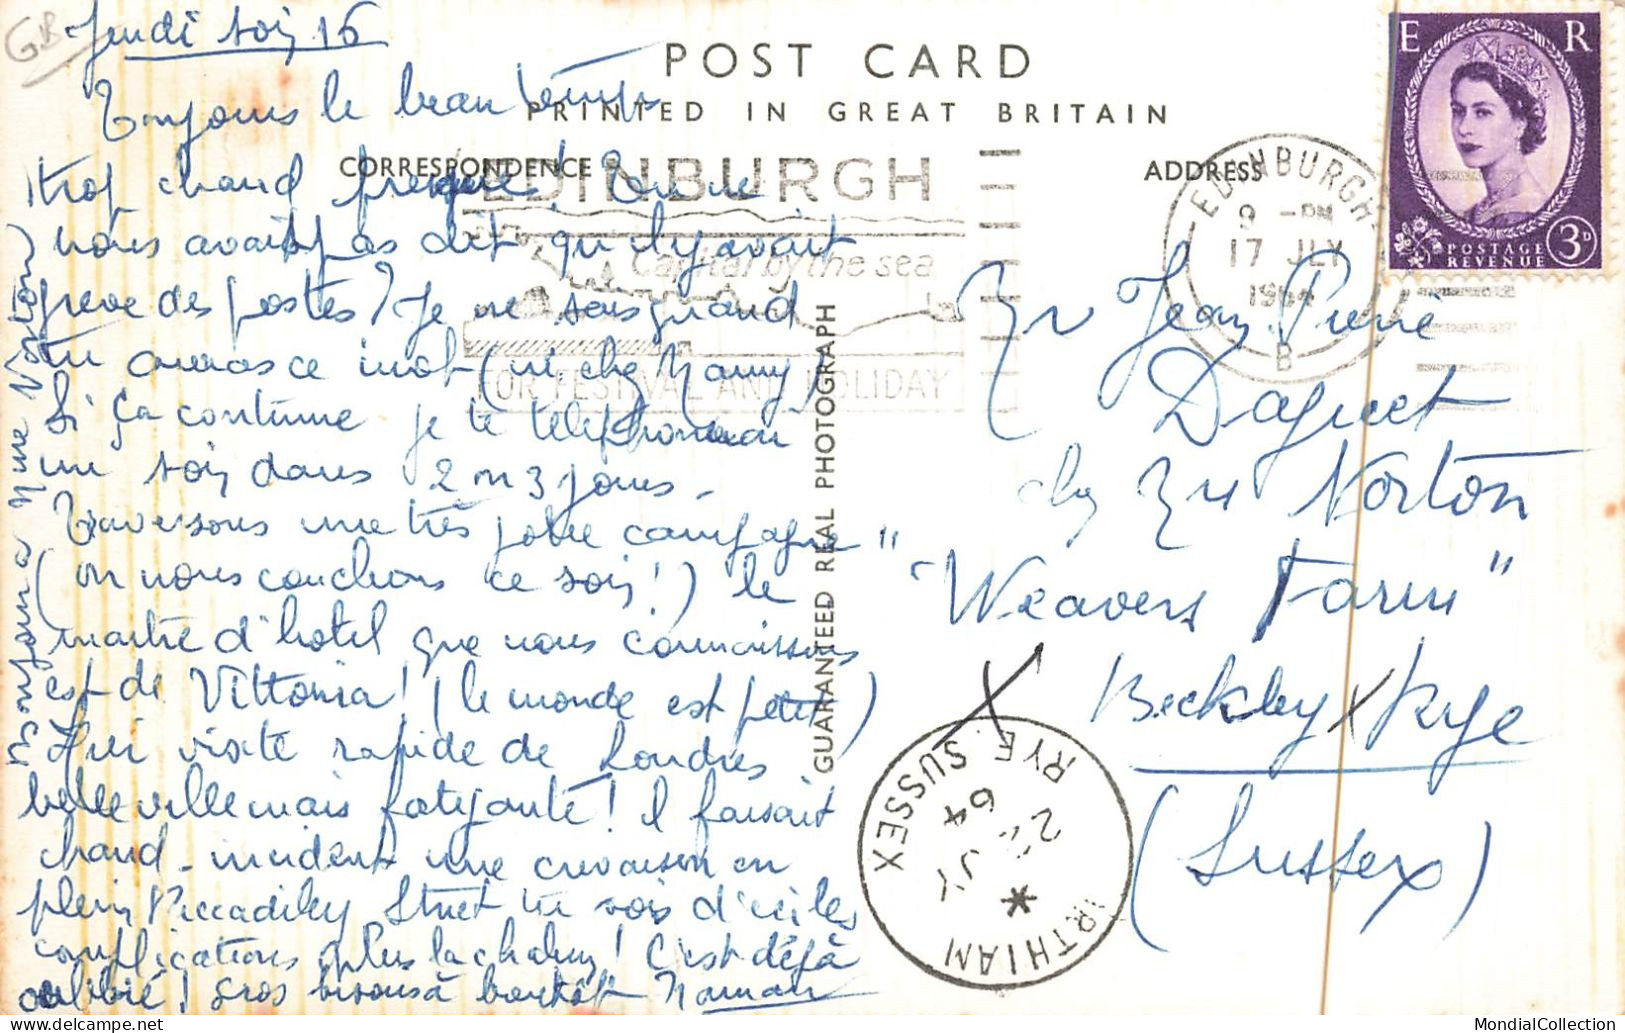 GB
Jeudi soir 16
POST CARD
PRINTED IN GREAT BRITAIN
CORRESPONDENCE
ADDRESS
Toujours le beau temps
trop chaud presque! Tu ne
nous avais pas dit qu'il y avait
greve des postes? Je ne sais quand
tu auras ce mot (ni chez Nanny)
Si ça continue je te telephonerai
un soir dans 2 ou 3 jours -
Traversons une très jolie campagne
(où nous couchons ce soir!) le
maitre d'hotel que nous connaissons
est de Vittonia! (le monde est petit)
Hier visite rapide de Londres
belle ville mais fatigante! il faisait
chaud - incident une crevaison en
plein Piccadilley Street tu vois d'ici les
complications plus la chaleur! C'est déjà
oublié! Gros bisous à bientôt Maman
Bonjour à Mme Norton)
GUARANTEED REAL PHOTOGRAPH
EDINBURGH
Capital by the sea
FOR FESTIVAL AND HOLIDAY
EDINBURGH
9 - PM
17 JLY
1964
B
E R
POSTAGE
REVENUE
3D
Mr Jean Pierre
Daguet
chez Mr Norton
"Weavers Farm"
Beckley x Rye
(Sussex)
X
NORTHIAM
RYE. SUSSEX
22 JY
64
MondialCollection